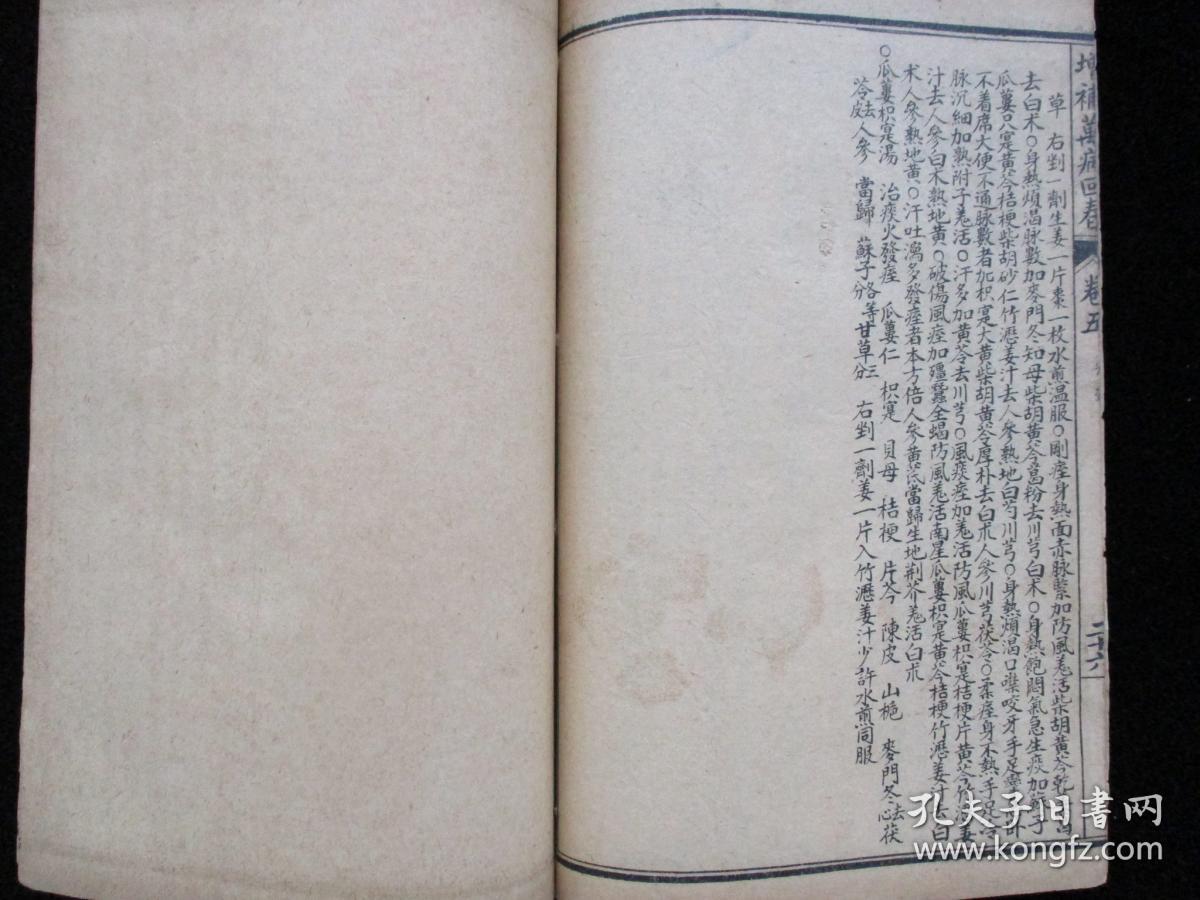 增補萬病回春 卷五 二十六
草 右剉一劑生姜一片棗一枚水煎溫服○剛痓身熱面赤脉緊加防風羗活柴胡黃芩乾
去白术○身熱煩渴脉數加麥門冬知母柴胡黃芩葛粉去川芎白术○身熱飽悶氣急生痰加
瓜蔞只寔黃芩桔梗柴胡砂仁竹瀝姜汁去人參熟地白芍川芎○身熱煩渴口噤咬牙手足
不着席大便不通脉數者加枳寔大黃柴胡黃芩厚朴去白朮人參川芎茯苓○柔痓身不熱手足冷
脉沉細加熟附子羗活○汗多加黃芪去川芎○風痰痓加羗活防風瓜蔞枳寔桔梗片黃芩竹瀝姜
汁去人參白术熟地黃○破傷風痓加殭蠶全蝎防風羗活南星瓜蔞枳寔黃芩桔梗竹瀝姜汁去白
术人參熟地黃○汗吐瀉多發痓者本方倍人參黃芪當歸生地荆芥羗活白朮
○瓜蔞枳寔湯 治痰火發痓 瓜蔞仁 枳寔 貝母 桔梗 片芩 陳皮 山梔 麥門冬去心 茯
苓去皮 人參 當歸 蘇子各等分 甘草三分 右剉一劑姜一片入竹瀝姜汁少許水煎同服
孔夫子旧书网
www.kongfz.com